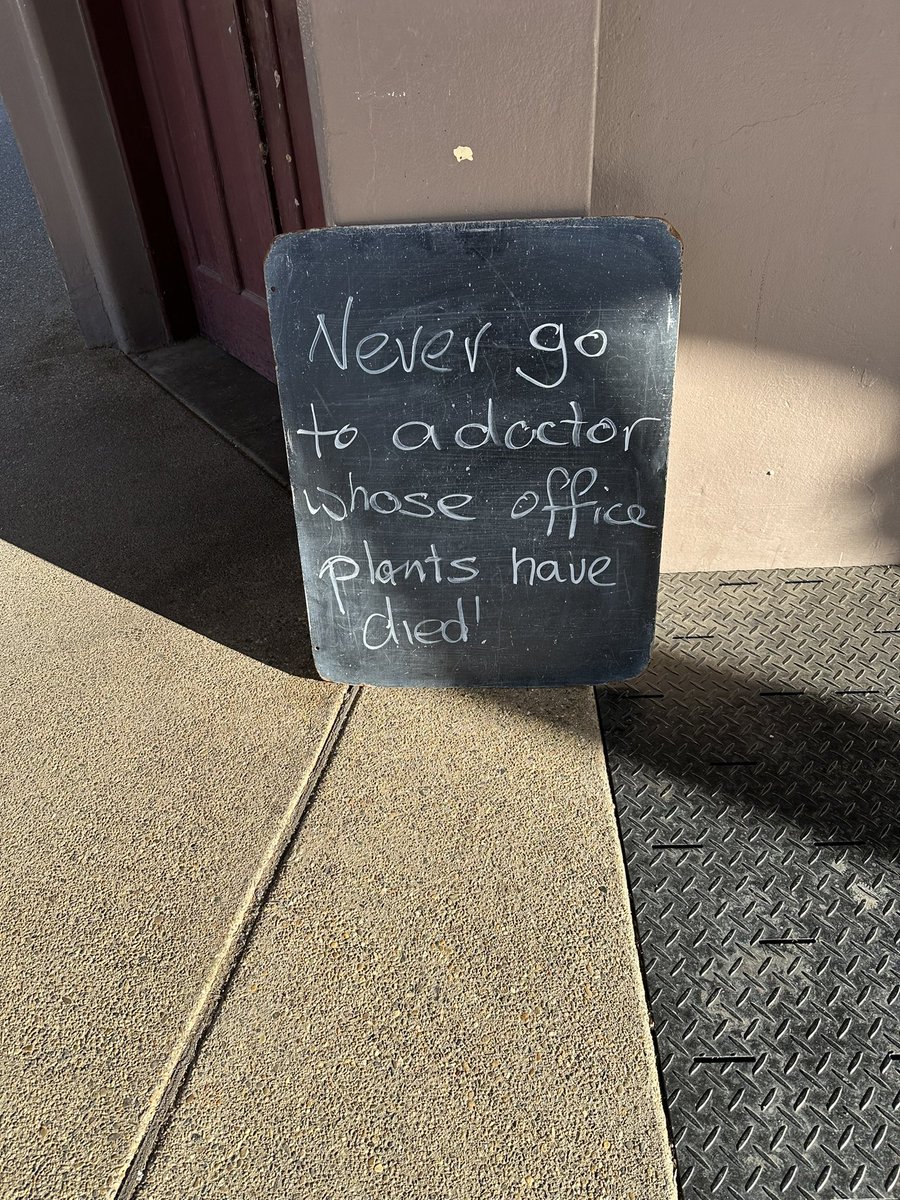 Never go
to a doctor
whose office
plants have
died!